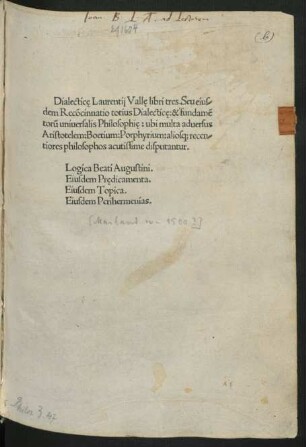 (6)
Dialecticę Laurentij Vallę libri tres. Seu eius-
dem Recōcinnatio totius Dialecticę: & fundamē
torū universalis Philosophię : ubi multa aduersus
Aristotelem: Boetium: Porphyrium: aliosq; recen-
tiores philosophos acutissime disputantur.
Logica Beati Augustini.
Eiusdem Prędicamenta.
Eiusdem Topica.
Eiusdem Perihermenias.
[Mailand um 1500]